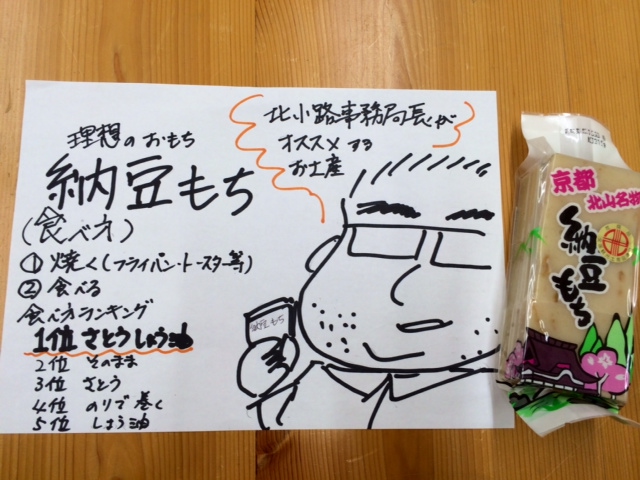 北小路事務局長が
オススメする
お土産
理想のおもち
納豆もち
(食べ方)
① 焼く(フライパン・トースター等)
② 食べる
食べ方ランキング
1位 さとうしょう油
2位 そのまま
3位 さとう
4位 のりで巻く
5位 しょう油
納豆もち
京都
北山名物
納豆もち